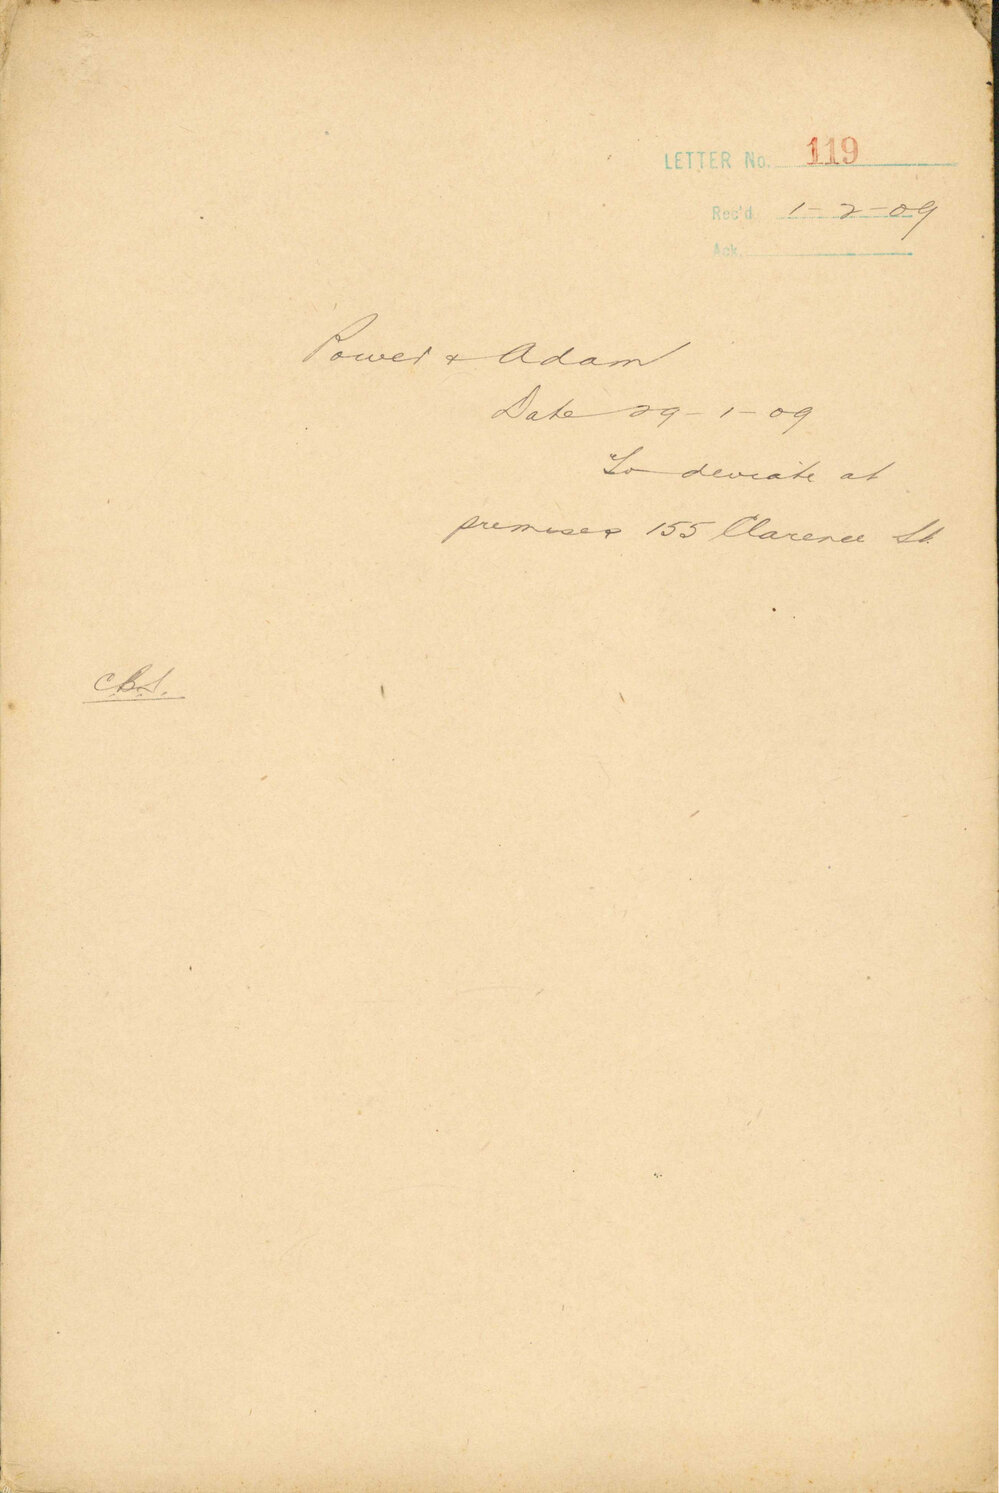 LETTER No. 119
Rec'd 1-2-09
Ack.
Power & Adam
Date 29-1-09
To deviate at
premises 155 Clarence St.
C.B.S.